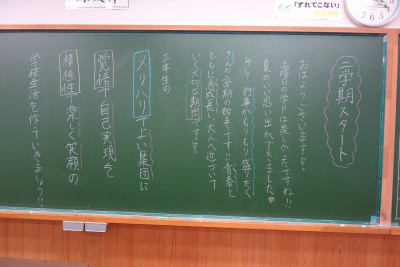 「ずれてこない」
二学期スタート
おはようございます!!
土曜の学P は楽しかったですね!!
夏のいい思い出ができました♥
さて、行事がもりもり盛りだく
さんの二学期の始まりです!!青春と
ともに成長し、大人へ近づいて
いく大切な期間です!!
三年生の
メリハリでよい集団に
覚悟で自己実現を
積極性で楽しく笑顔の
学校生活を作っていきましょう!!